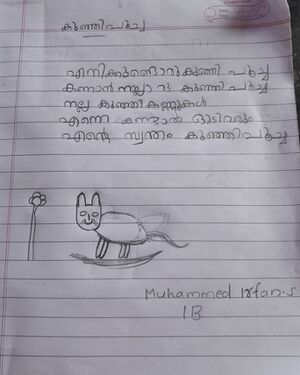 കുഞ്ഞിപൂച്ച
എനിക്കുണ്ടൊരു കുഞ്ഞി പൂച്ച
കാണാൻ നല്ലൊരു കുഞ്ഞി പൂച്ച
നല്ല കുഞ്ഞികണ്ണുകൾ
എന്നെ കണ്ടാൽ ഓടിവരും
എന്റെ സ്വന്തം കുഞ്ഞിപൂച്ച
Muhammed Irfan.S
1B